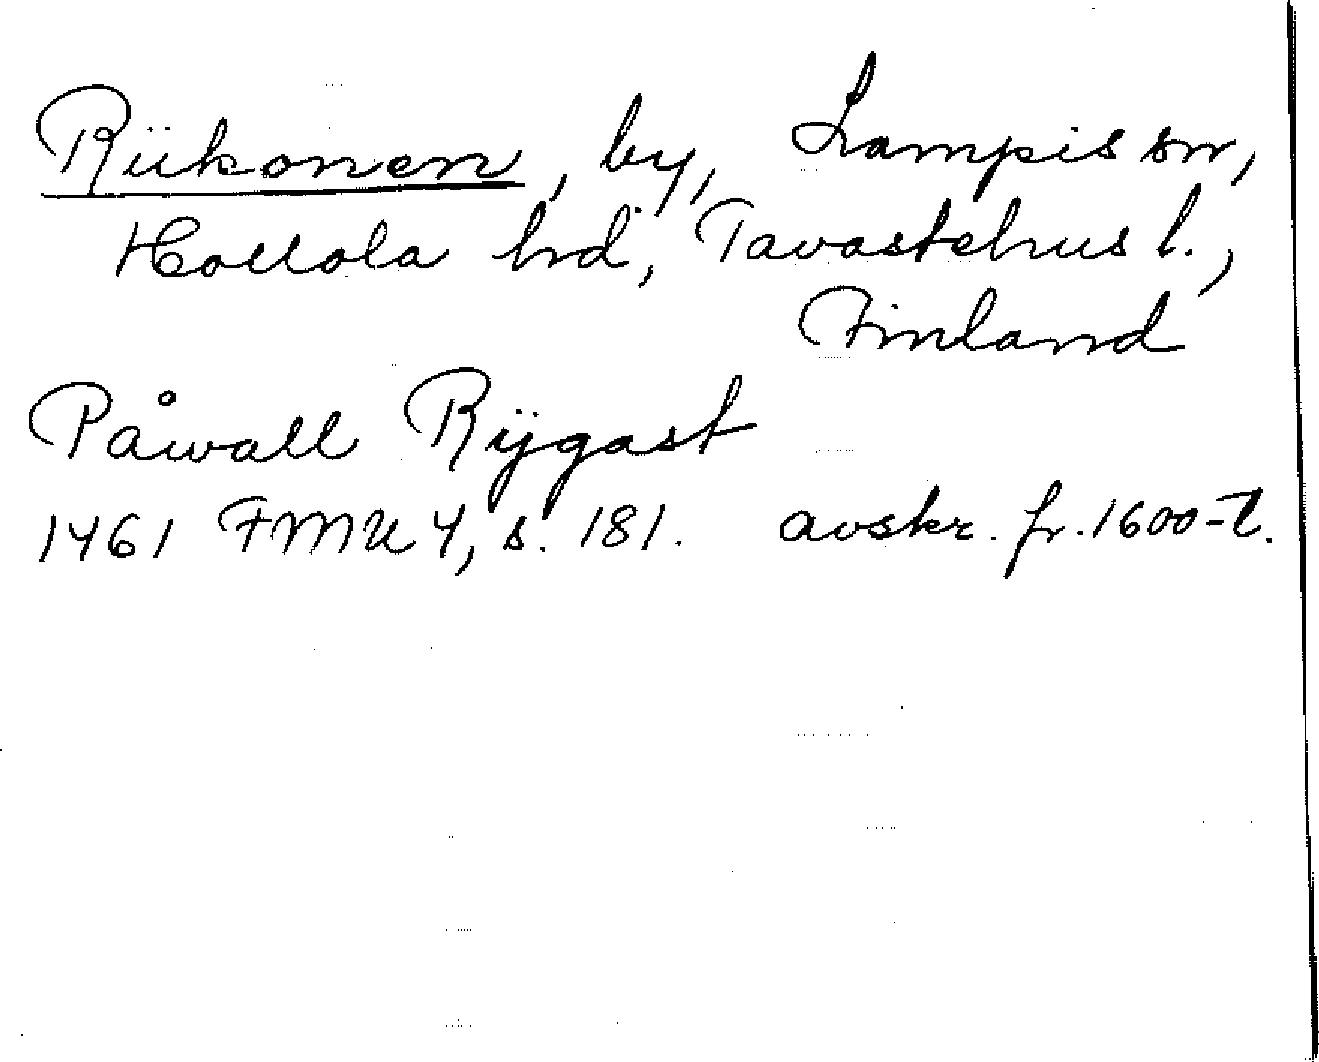 Riikonen, by, Lampis sn,
Hollola hd, Tavastehus l.,
Finland
Påwall Rijgast
1461 FMU 4, s. 181. avskr. fr. 1600-t.